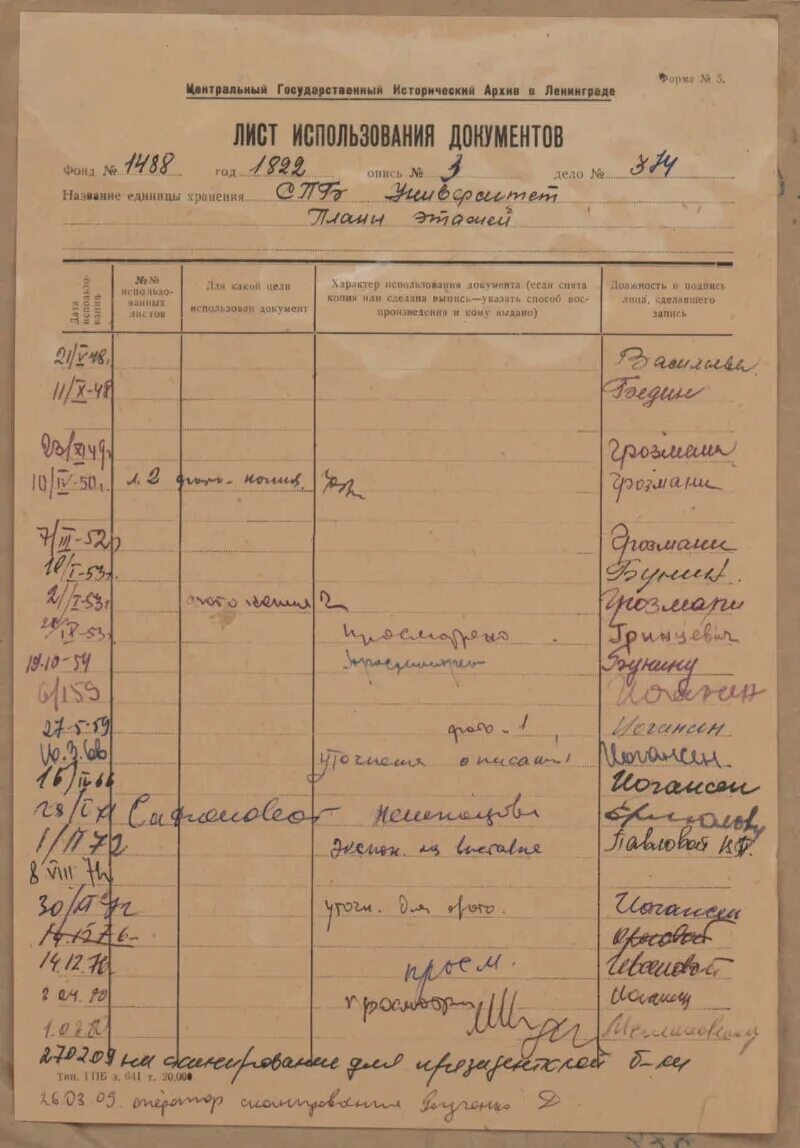 Форма № 5.
Центральный Государственный Исторический Архив в Ленинграде
ЛИСТ ИСПОЛЬЗОВАНИЯ ДОКУМЕНТОВ
Фонд № 1488 год 1822 опись № 3 дело № 374
Название единицы хранения СПБ Университет
Планы этажей
Дата использования
№№ использованных листов
Для какой цели использован документ
Характер использования документа (если снята копия или сделана выпись—указать способ воспроизведения и кому выдано)
Должность и подпись лица, сделавшего запись
21/V-48. Васильева
11/X-48 Бедин
23/XI 49. Грозмани
10/IV-50. л. 2 фото-копия Грозмани
7/III-52 Грозмани
10/I-53 Бунин.
2/I-53 фотокопия Грозмани
IX-53. Просмотрено Гринцевич
19.10-54 Просмотрено Бунину
6/I59 Иогансен
27-5-59 фото-1 Иогансен
уточнения описат Иогансен.
16/IV 66 Иогансен
28/ Сафоновой
1/II 72 Экспон. на выставке Павловой
8 VIII 74
30/ уточн. для фото. Иогансен
14.12.76
14.12.76 просм. Ивановой
Иогансен
270209 на сканирование для президентской б-ки
Тип. ГПБ з. 641 т. 20.000
26.03.09 оператор сканирования Д